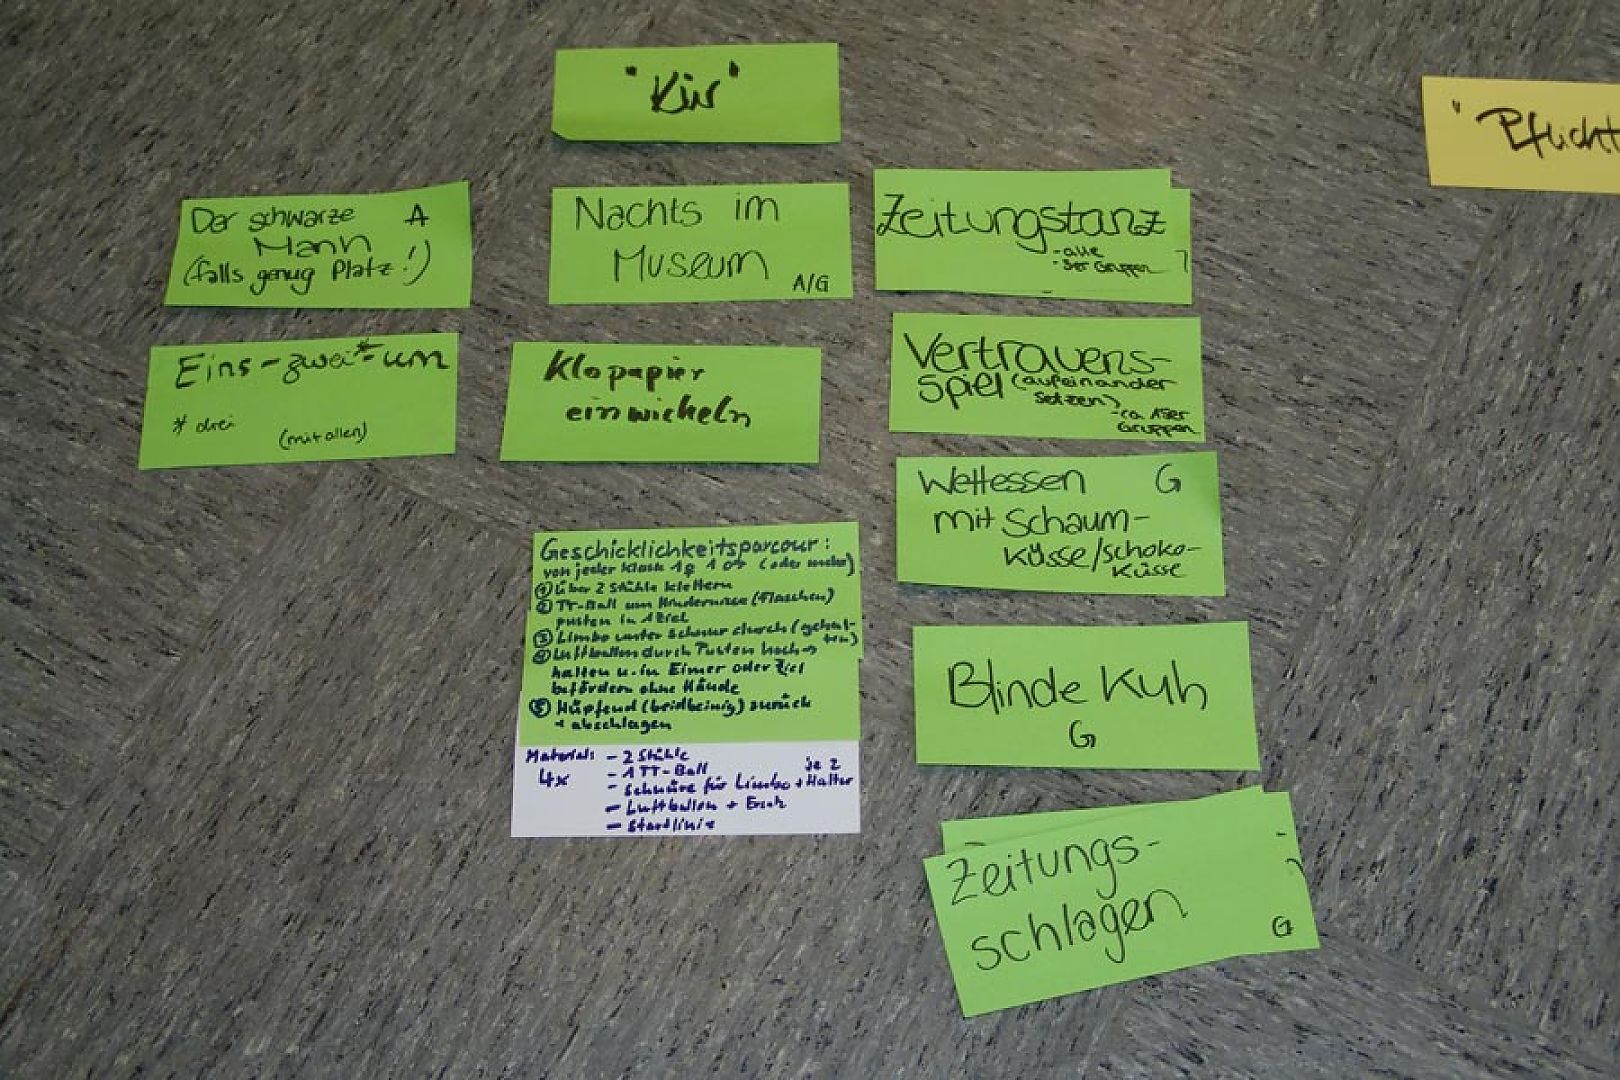 "Kür"
"Pflicht
Der schwarze A
Mann
(falls genug Platz!)
Nachts im
Museum
A/G
Zeitungstanz
- alle
- 3er Gruppen
Eins-zwei*-um
* drei
(mit allen)
Klopapier
einwickeln
Vertrauens-
spiel (aufeinander
setzen)
- ca. 15er
Gruppen
Wettessen G
mit Schaum-
küsse/Schoko-
küsse
Geschicklichkeitsparcour:
von jeder Klasse 1♀ 1♂ (oder mehr)
① über 2 Stühle klettern
② TT-Ball um Hindernisse (Flaschen)
pusten in 1 Ziel
③ Limbo unter Schnur durch (gehal-
ten)
④ Luftballon durch Pusten hoch→
halten u. in Eimer oder Ziel
befördern ohne Hände
⑤ Hüpfend (beidbeinig) zurück
+ abschlagen
Material: - 2 Stühle
4x - 1 TT-Ball je 2
- Schnüre für Limbo + Halter
- Luftballon + Ersatz
- Startlinie
Blinde Kuh
G
Zeitungs-
schlagen
G